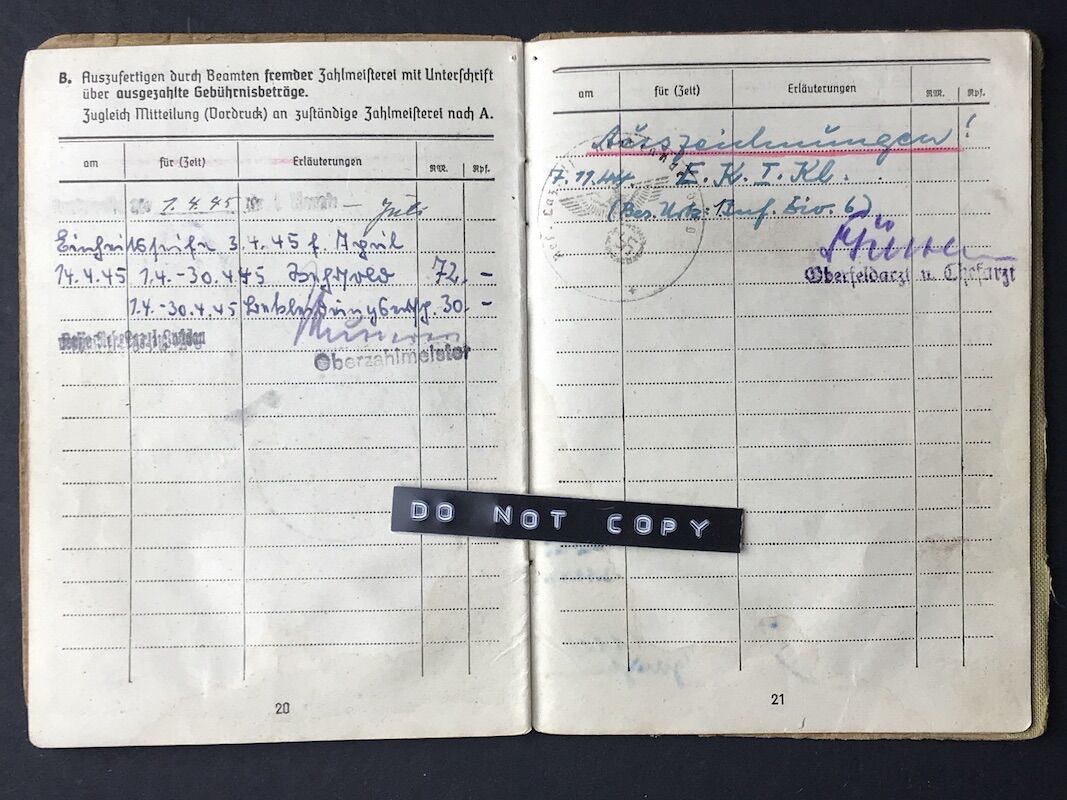 B. Auszufertigen durch Beamten fremder Zahlmeisterei mit Unterschrift
über ausgezahlte Gebührnisbeträge.
Zugleich Mitteilung (Vordruck) an zuständige Zahlmeisterei nach A.
am für (Zeit) Erläuterungen RM. Rpf.
1.4.45
3.4.45 f. April
14.4.45 1.4.-30.4.45 Wehrsold 72.-
1.4.-30.4.45 30.-
Oberzahlmeister
20
am für (Zeit) Erläuterungen RM. Rpf.
Auszeichnungen!
7.11.44. E. K. I. Kl.
(Bes. Urk: 1. Inf. Div. 6)
Oberfeldarzt u. Chefarzt
DO NOT COPY
21